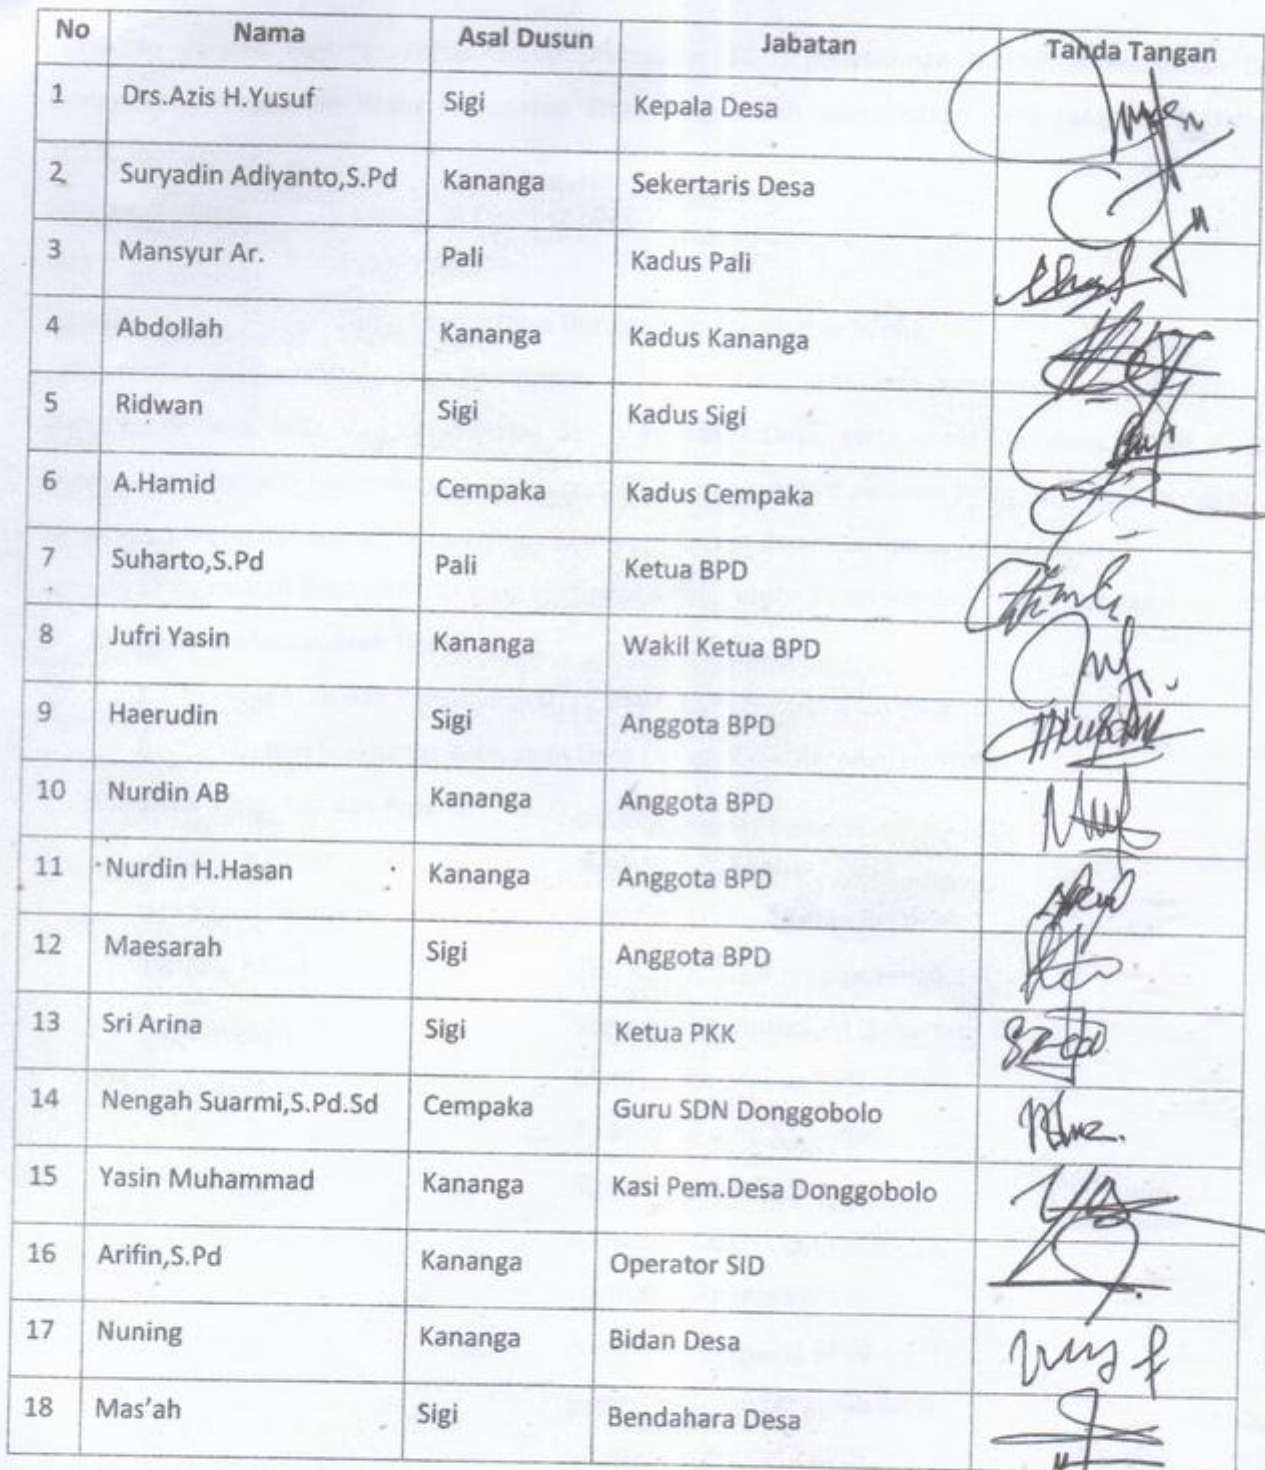 No Nama Asal Dusun Jabatan Tanda Tangan
1 Drs.Azis H.Yusuf Sigi Kepala Desa
2 Suryadin Adiyanto,S.Pd Kananga Sekertaris Desa
3 Mansyur Ar. Pali Kadus Pali
4 Abdollah Kananga Kadus Kananga
5 Ridwan Sigi Kadus Sigi
6 A.Hamid Cempaka Kadus Cempaka
7 Suharto,S.Pd Pali Ketua BPD
8 Jufri Yasin Kananga Wakil Ketua BPD
9 Haerudin Sigi Anggota BPD
10 Nurdin AB Kananga Anggota BPD
11 Nurdin H.Hasan Kananga Anggota BPD
12 Maesarah Sigi Anggota BPD
13 Sri Arina Sigi Ketua PKK
14 Nengah Suarmi,S.Pd.Sd Cempaka Guru SDN Donggobolo
15 Yasin Muhammad Kananga Kasi Pem.Desa Donggobolo
16 Arifin,S.Pd Kananga Operator SID
17 Nuning Kananga Bidan Desa
18 Mas'ah Sigi Bendahara Desa